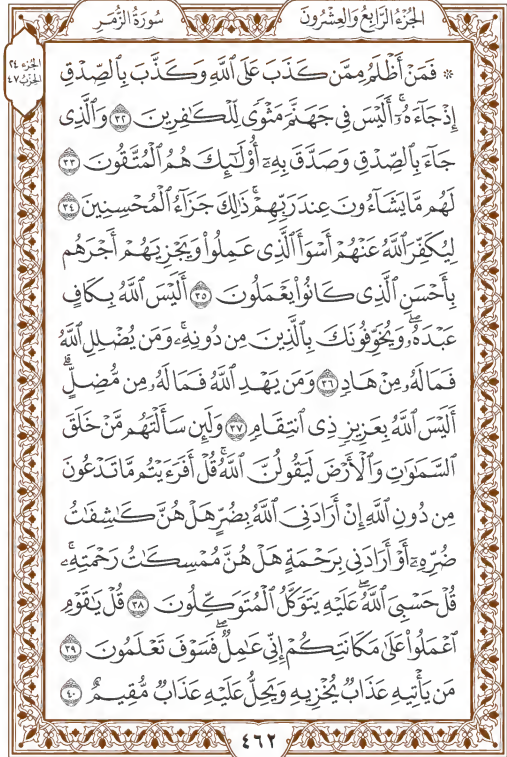 الجُزْءُ الرَّابِعُ وَالعِشْرُونَ
سُورَةُ الزُّمَرِ
الجزء ٢٤
الحزب ٤٧
۞ فَمَنْ أَظْلَمُ مِمَّن كَذَبَ عَلَى اللَّهِ وَكَذَّبَ بِالصِّدْقِ
إِذْ جَاءَهُۥٓ ۚ أَلَيْسَ فِي جَهَنَّمَ مَثْوًى لِّلْكَافِرِينَ ٣٢ وَالَّذِي
جَاءَ بِالصِّدْقِ وَصَدَّقَ بِهِۦٓ أُو۟لَٰٓئِكَ هُمُ الْمُتَّقُونَ ٣٣
لَهُم مَّا يَشَاءُونَ عِندَ رَبِّهِمْ ۚ ذَٰلِكَ جَزَاءُ الْمُحْسِنِينَ ٣٤
لِيُكَفِّرَ اللَّهُ عَنْهُمْ أَسْوَأَ الَّذِي عَمِلُوا۟ وَيَجْزِيَهُمْ أَجْرَهُم
بِأَحْسَنِ الَّذِي كَانُوا۟ يَعْمَلُونَ ٣٥ أَلَيْسَ اللَّهُ بِكَافٍ
عَبْدَهُۥ ۖ وَيُخَوِّفُونَكَ بِالَّذِينَ مِن دُونِهِۦ ۚ وَمَن يُضْلِلِ اللَّهُ
فَمَا لَهُۥ مِنْ هَادٍ ٣٦ وَمَن يَهْدِ اللَّهُ فَمَا لَهُۥ مِن مُّضِلٍّ ۗ
أَلَيْسَ اللَّهُ بِعَزِيزٍ ذِي انتِقَامٍ ٣٧ وَلَئِن سَأَلْتَهُم مَّنْ خَلَقَ
السَّمَٰوَٰتِ وَالْأَرْضَ لَيَقُولُنَّ اللَّهُ ۚ قُلْ أَفَرَءَيْتُم مَّا تَدْعُونَ
مِن دُونِ اللَّهِ إِنْ أَرَادَنِيَ اللَّهُ بِضُرٍّ هَلْ هُنَّ كَٰشِفَٰتُ
ضُرِّهِۦٓ أَوْ أَرَادَنِي بِرَحْمَةٍ هَلْ هُنَّ مُمْسِكَٰتُ رَحْمَتِهِۦ ۚ
قُلْ حَسْبِيَ اللَّهُ ۖ عَلَيْهِ يَتَوَكَّلُ الْمُتَوَكِّلُونَ ٣٨ قُلْ يَٰقَوْمِ
اعْمَلُوا۟ عَلَىٰ مَكَانَتِكُمْ إِنِّي عَٰمِلٌ ۖ فَسَوْفَ تَعْلَمُونَ ٣٩
مَن يَأْتِيهِ عَذَابٌ يُخْزِيهِ وَيَحِلُّ عَلَيْهِ عَذَابٌ مُّقِيمٌ ٤٠
٤٦٢